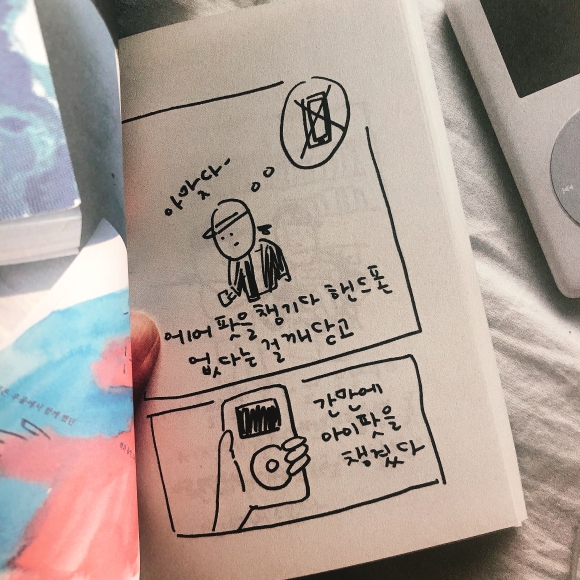 아 맞다-
에어팟을 챙기다 핸드폰
없다는 걸 깨닫고
간만에
아이팟을
챙겼다